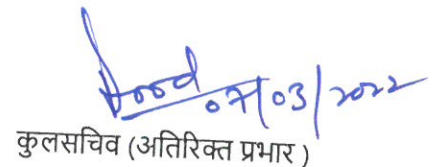 07/03/2022
कुलसचिव (अतिरिक्त प्रभार)